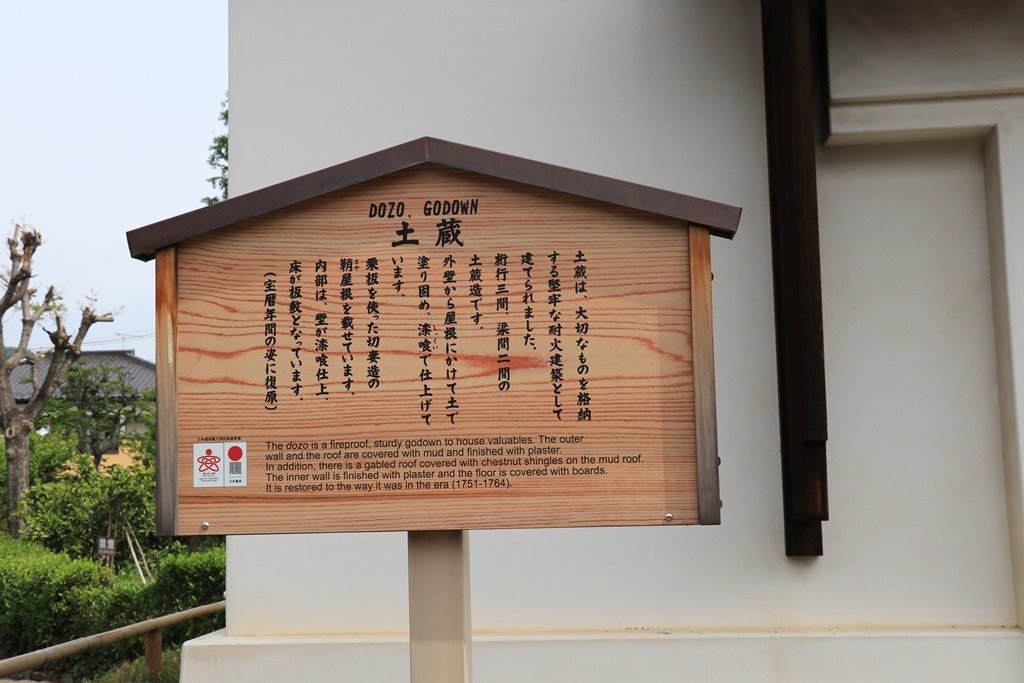 DOZO, GODOWN
土蔵
土蔵は、大切なものを格納
する堅牢な耐火建築として
建てられました。
桁行三間、梁間二間の
土蔵造です。
外壁から屋根にかけて土で
塗り固め、漆喰で仕上げて
しっくい
います。
栗板を使った切妻造の
鞘屋根を載せています。
さや
内部は、壁が漆喰仕上、
床が板敷となっています。
(宝暦年間の姿に復原)
The dozo is a fireproof, sturdy godown to house valuables. The outer
wall and the roof are covered with mud and finished with plaster.
In addition, there is a gabled roof covered with chestnut shingles on the mud roof.
The inner wall is finished with plaster and the floor is covered with boards.
It is restored to the way it was in the era (1751-1764).
文化庁
日本遺産
禁煙